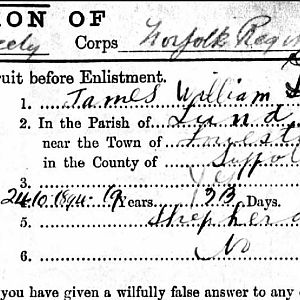 ION OF
Corps Norfolk Regi
ruit before Enlistment.
1. James William
2. In the Parish of Lund
near the Town of
in the County of Suffol
3. Yes
19 Years 133 Days.
5. Shepherd
6. No
you have given a wilfully false answer to any